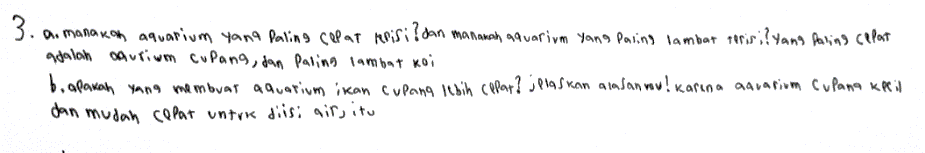 3. a. manakah aquarium yang paling cepat terisi? dan manakah aquarium yang paling lambat terisi? yang paling cepat
adalah aqurium cupang, dan paling lambat koi
b. apakah yang membuat aquarium ikan cupang lebih cepat? jelaskan alasanmu! karena aquarium cupang kecil
dan mudah cepat untuk diisi air, itu